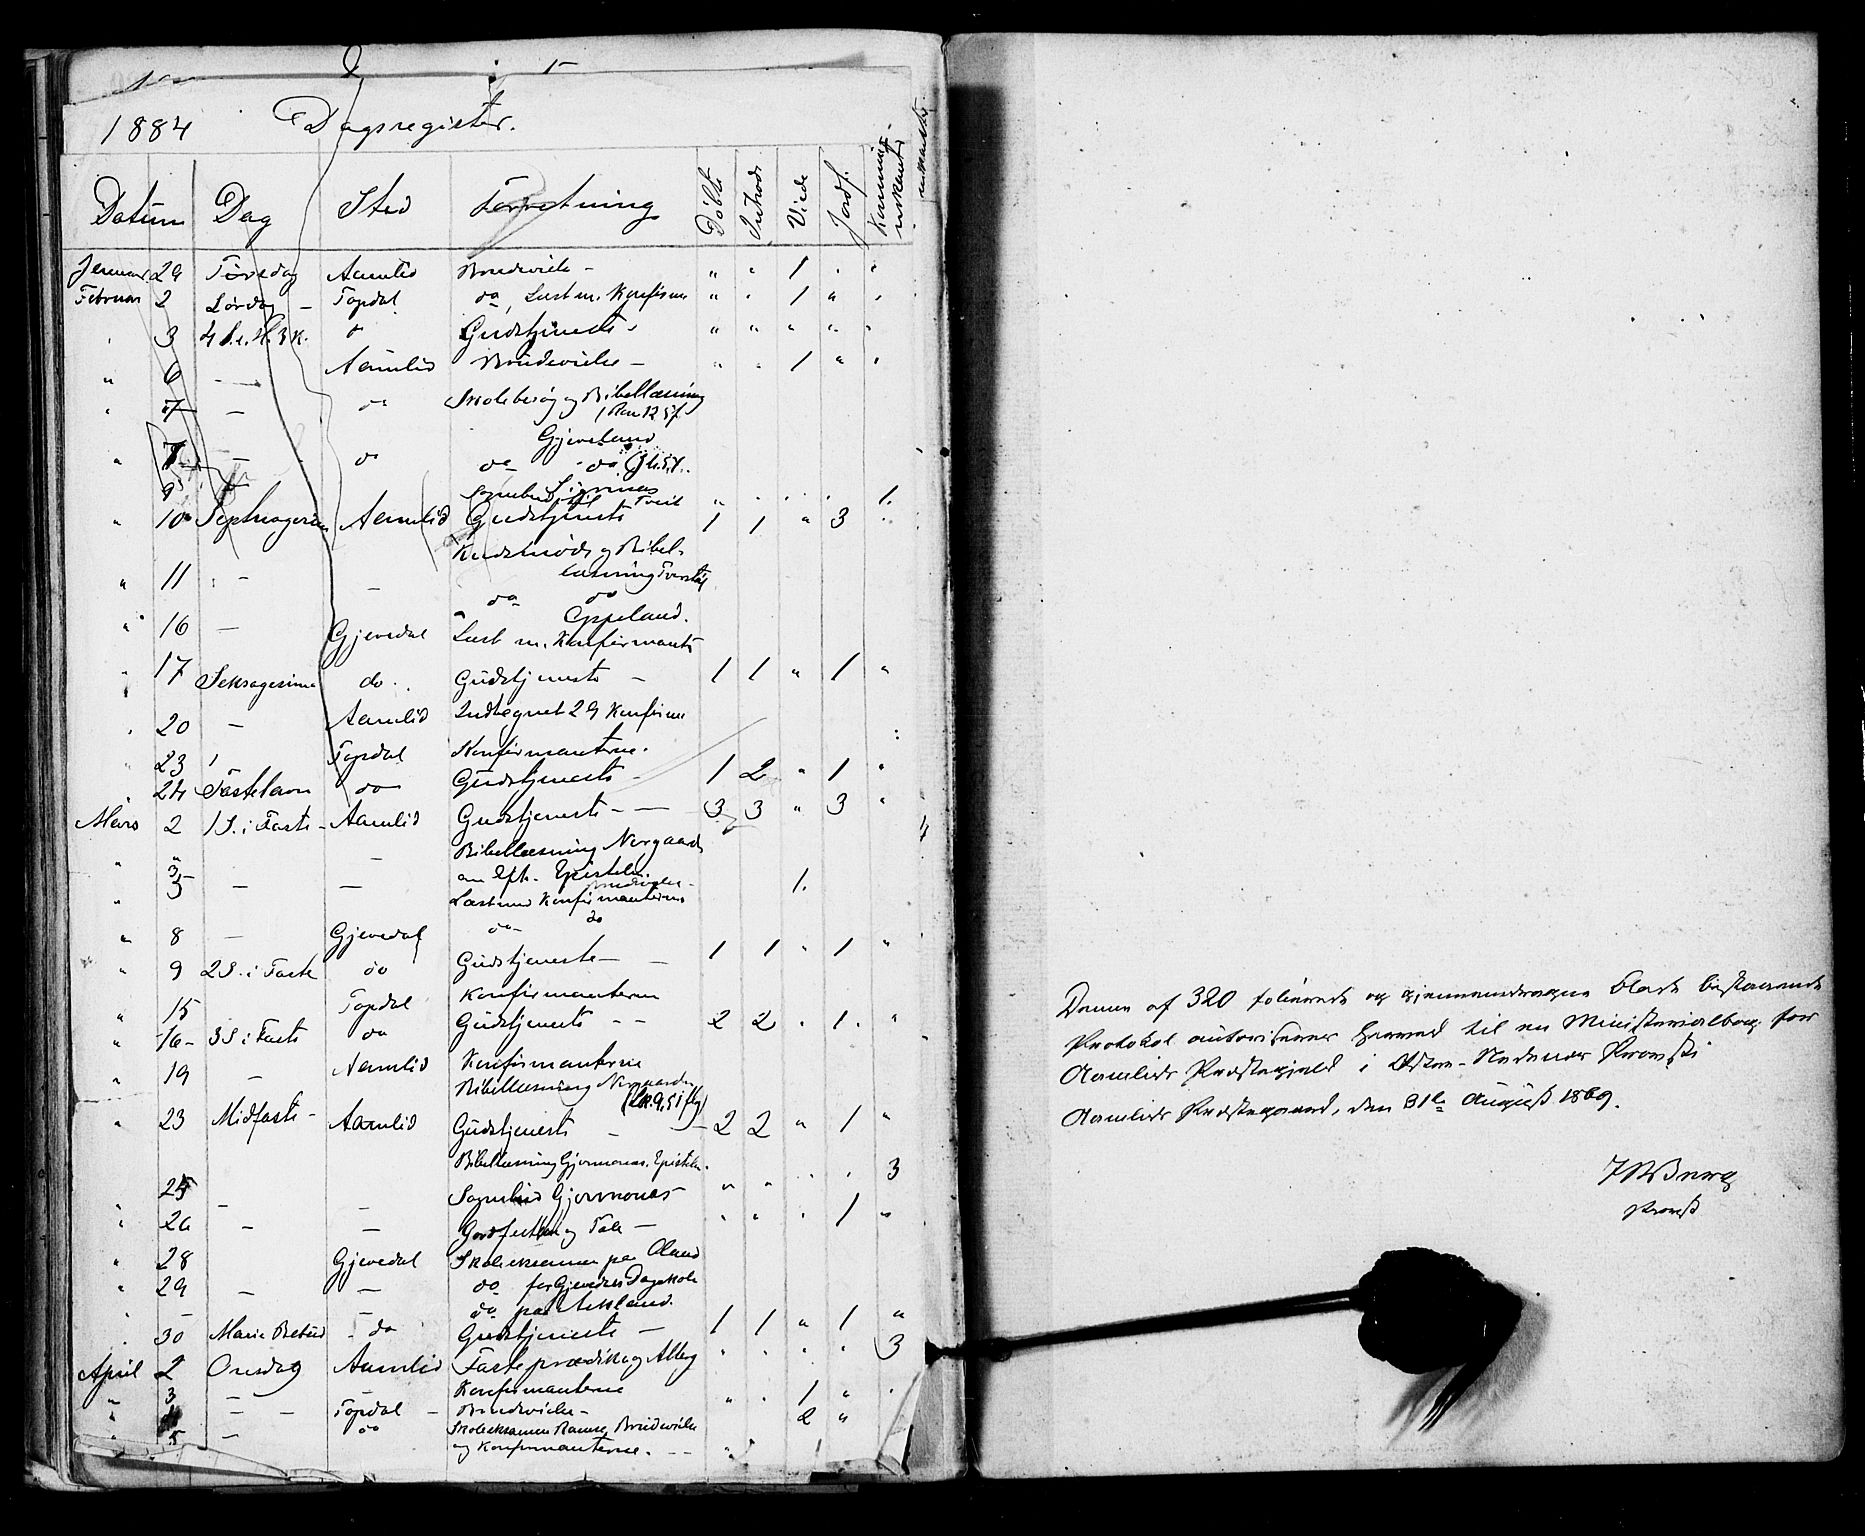 1884 Dagsregister.
Datum Dag Sted Forretning Döbte Introd. Viede Jordf. Kommunikanter
Januar 29 Tirsdag Aamlid Brudevielse - " " 1 " "
Februar 2 Lørdag - Topdal do, Læst m. Konfirm " " 1 " "
" 3 4 S. e. H. 3 K. do Gudstjeneste - " " " " "
" 6 - Aamlid Brudevielse - " " 1 " "
" 7 - do Skolebesøg og Bibellæsning
Gjeveland
" 7 - do do do
9 Sognebud
" 10 Septuagesima Aamlid Gudstjeneste 1 1 " 3
og Bibel-
" 11 - - læsning
do do
Eppeland.
" 16 - Gjevedal Læst m. Konfirmante
" 17 Seksagesima do. Gudstjeneste - 1 1 " 1 "
" 20 - Aamlid Indtegnet 29 Konfirm
" 23 Topdal Konfirmanterne.
" 24 Fastelavn do Gudstjeneste - 1 2 " 1 "
Mars 2 1 S. i Faste - Aamlid Gudstjeneste - - 3 3 " 3 "
" " - Bibellæsning Nergaard
Epistelen
" 5 - - Læst med Konfirmanterne 1.
" 8 - Gjevedal do do
" 9 2 S. i Faste do Gudstjeneste - - 1 1 " 1 "
" 15 Topdal Konfirmanterne
" 16 - 3 S i Faste do Gudstjeneste - - 2 2 " 1 "
" 19 - Aamlid Konfirmanterne
Bibellæsning
" 23 Midfaste - Aamlid Gudstjeneste - 2 2 " 1 "
Bibellæsning Gjermones. Epistlen.
25 - - Sognebud Gjermones - " " " " 3
" 26 - - Jordfestelse og Tale - " " " 1 "
" 28 Gjevedal Skoleeksamen paa Oland
" 29 - - do for Gjevedals Dagskole
- do paa Askland.
" 30 Mariæ Bebud - do Gudstjeneste - 1 1 " 1 "
April 2 Onsdag Aamlid Fasteprædiken og Alterg " " " " 3
" 3 Konfirmanterne
" - - Topdal - Brudevielse - " " 1 " "
" 5 - do Skoleeksamen Ramse, Brudevielse 2 "
og Konfirmanterne. - -
Denne af 320 folierede og gjennemdragne Blade bestaaende
Protokol autoriseres herved til en Ministerialbog for
Aamlids Præstegjeld i Østre-Nedenes Provsti
Aamlids Præstegaard, den 31te August 1869.
Provst